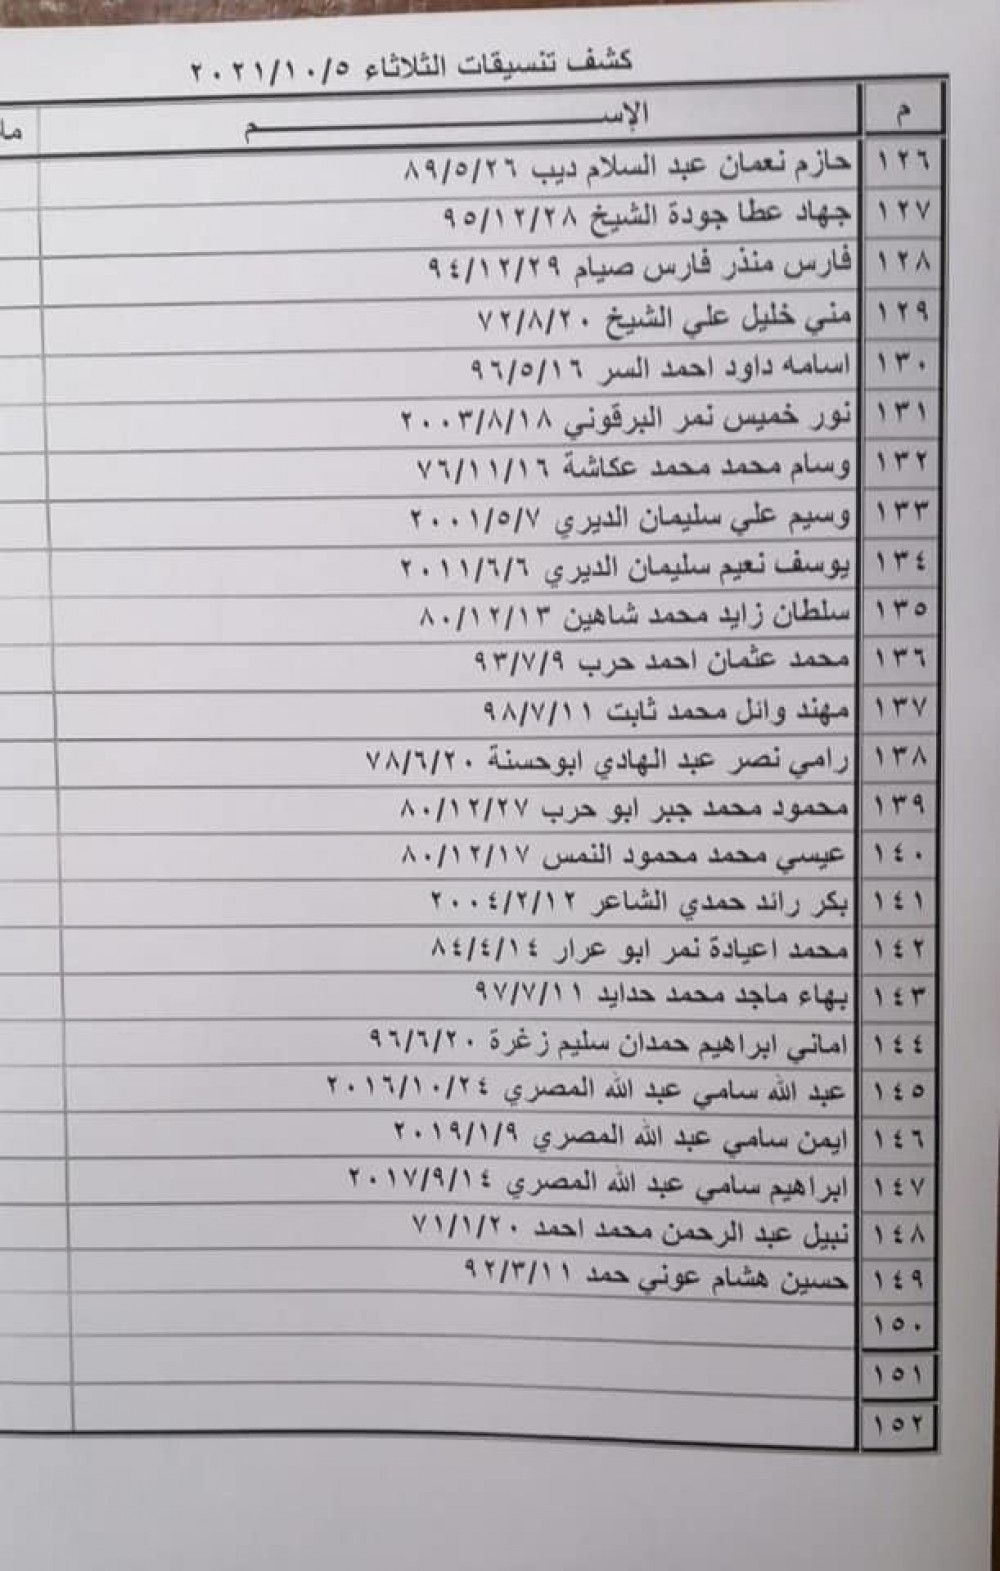 كشف تنسيقات الثلاثاء ٢٠٢١/١٠/٥
م الإســـــــــــم ما
١٢٦ حازم نعمان عبد السلام ديب ٨٩/٥/٢٦
١٢٧ جهاد عطا جودة الشيخ ٩٥/١٢/٢٨
١٢٨ فارس منذر فارس صيام ٩٤/١٢/٢٩
١٢٩ مني خليل علي الشيخ ٧٢/٨/٢٠
١٣٠ اسامه داود احمد السر ٩٦/٥/١٦
١٣١ نور خميس نمر البرقوني ٢٠٠٣/٨/١٨
١٣٢ وسام محمد محمد عكاشة ٧٦/١١/١٦
١٣٣ وسيم علي سليمان الديري ٢٠٠١/٥/٧
١٣٤ يوسف نعيم سليمان الديري ٢٠١١/٦/٦
١٣٥ سلطان زايد محمد شاهين ٨٠/١٢/١٣
١٣٦ محمد عثمان احمد حرب ٩٣/٧/٩
١٣٧ مهند وائل محمد ثابت ٩٨/٧/١١
١٣٨ رامي نصر عبد الهادي ابوحسنة ٧٨/٦/٢٠
١٣٩ محمود محمد جبر ابو حرب ٨٠/١٢/٢٧
١٤٠ عيسي محمد محمود النمس ٨٠/١٢/١٧
١٤١ بكر رائد حمدي الشاعر ٢٠٠٤/٢/١٢
١٤٢ محمد اعيادة نمر ابو عرار ٨٤/٤/١٤
١٤٣ بهاء ماجد محمد حدايد ٩٧/٧/١١
١٤٤ اماني ابراهيم حمدان سليم زغرة ٩٦/٦/٢٠
١٤٥ عبد الله سامي عبد الله المصري ٢٠١٦/١٠/٢٤
١٤٦ ايمن سامي عبد الله المصري ٢٠١٩/١/٩
١٤٧ ابراهيم سامي عبد الله المصري ٢٠١٧/٩/١٤
١٤٨ نبيل عبد الرحمن محمد احمد ٧١/١/٢٠
١٤٩ حسين هشام عوني حمد ٩٢/٣/١١
١٥٠
١٥١
١٥٢